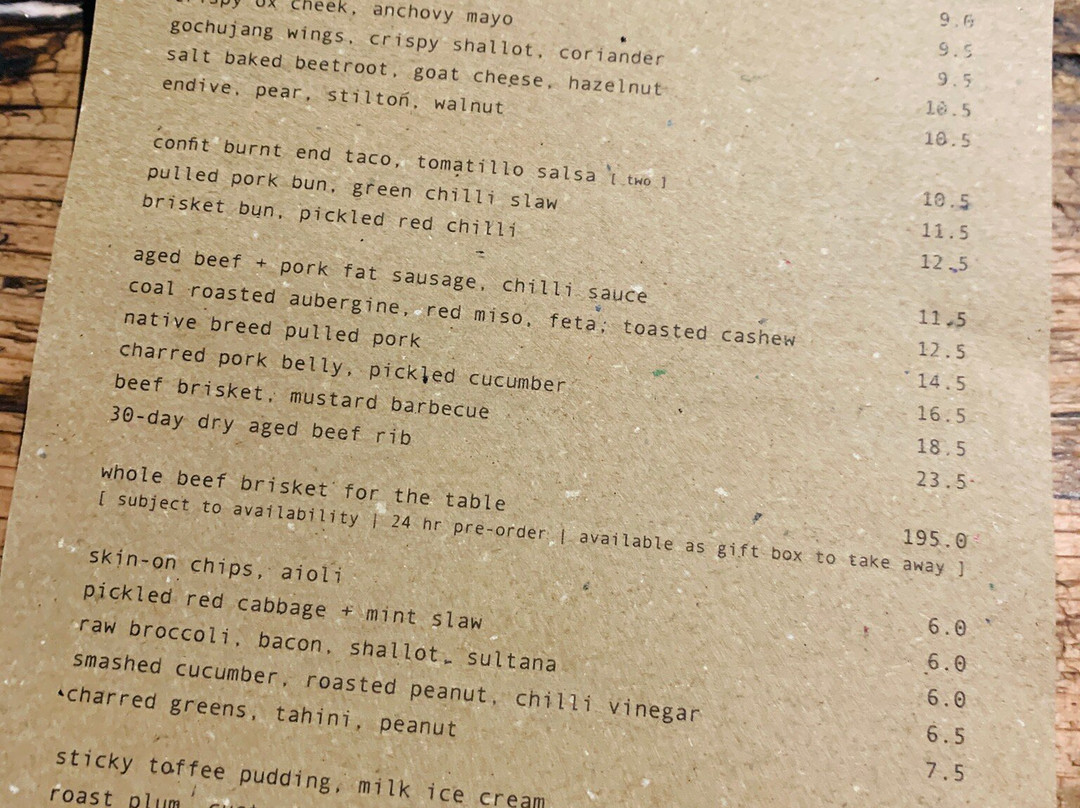 9.0
ox cheek, anchovy mayo 9.5
gochujang wings, crispy shallot, coriander 9.5
salt baked beetroot, goat cheese, hazelnut 10.5
endive, pear, stilton, walnut 10.5
confit burnt end taco, tomatillo salsa [ two ] 10.5
pulled pork bun, green chilli slaw 11.5
brisket bun, pickled red chilli 12.5
aged beef + pork fat sausage, chilli sauce 11.5
coal roasted aubergine, red miso, feta, toasted cashew 12.5
native breed pulled pork 14.5
charred pork belly, pickled cucumber 16.5
beef brisket, mustard barbecue 18.5
30-day dry aged beef rib 23.5
whole beef brisket for the table 195.0
[ subject to availability | 24 hr pre-order | available as gift box to take away ]
skin-on chips, aioli 6.0
pickled red cabbage + mint slaw 6.0
raw broccoli, bacon, shallot, sultana 6.0
smashed cucumber, roasted peanut, chilli vinegar 6.5
charred greens, tahini, peanut 7.5
sticky toffee pudding, milk ice cream
roast plum,